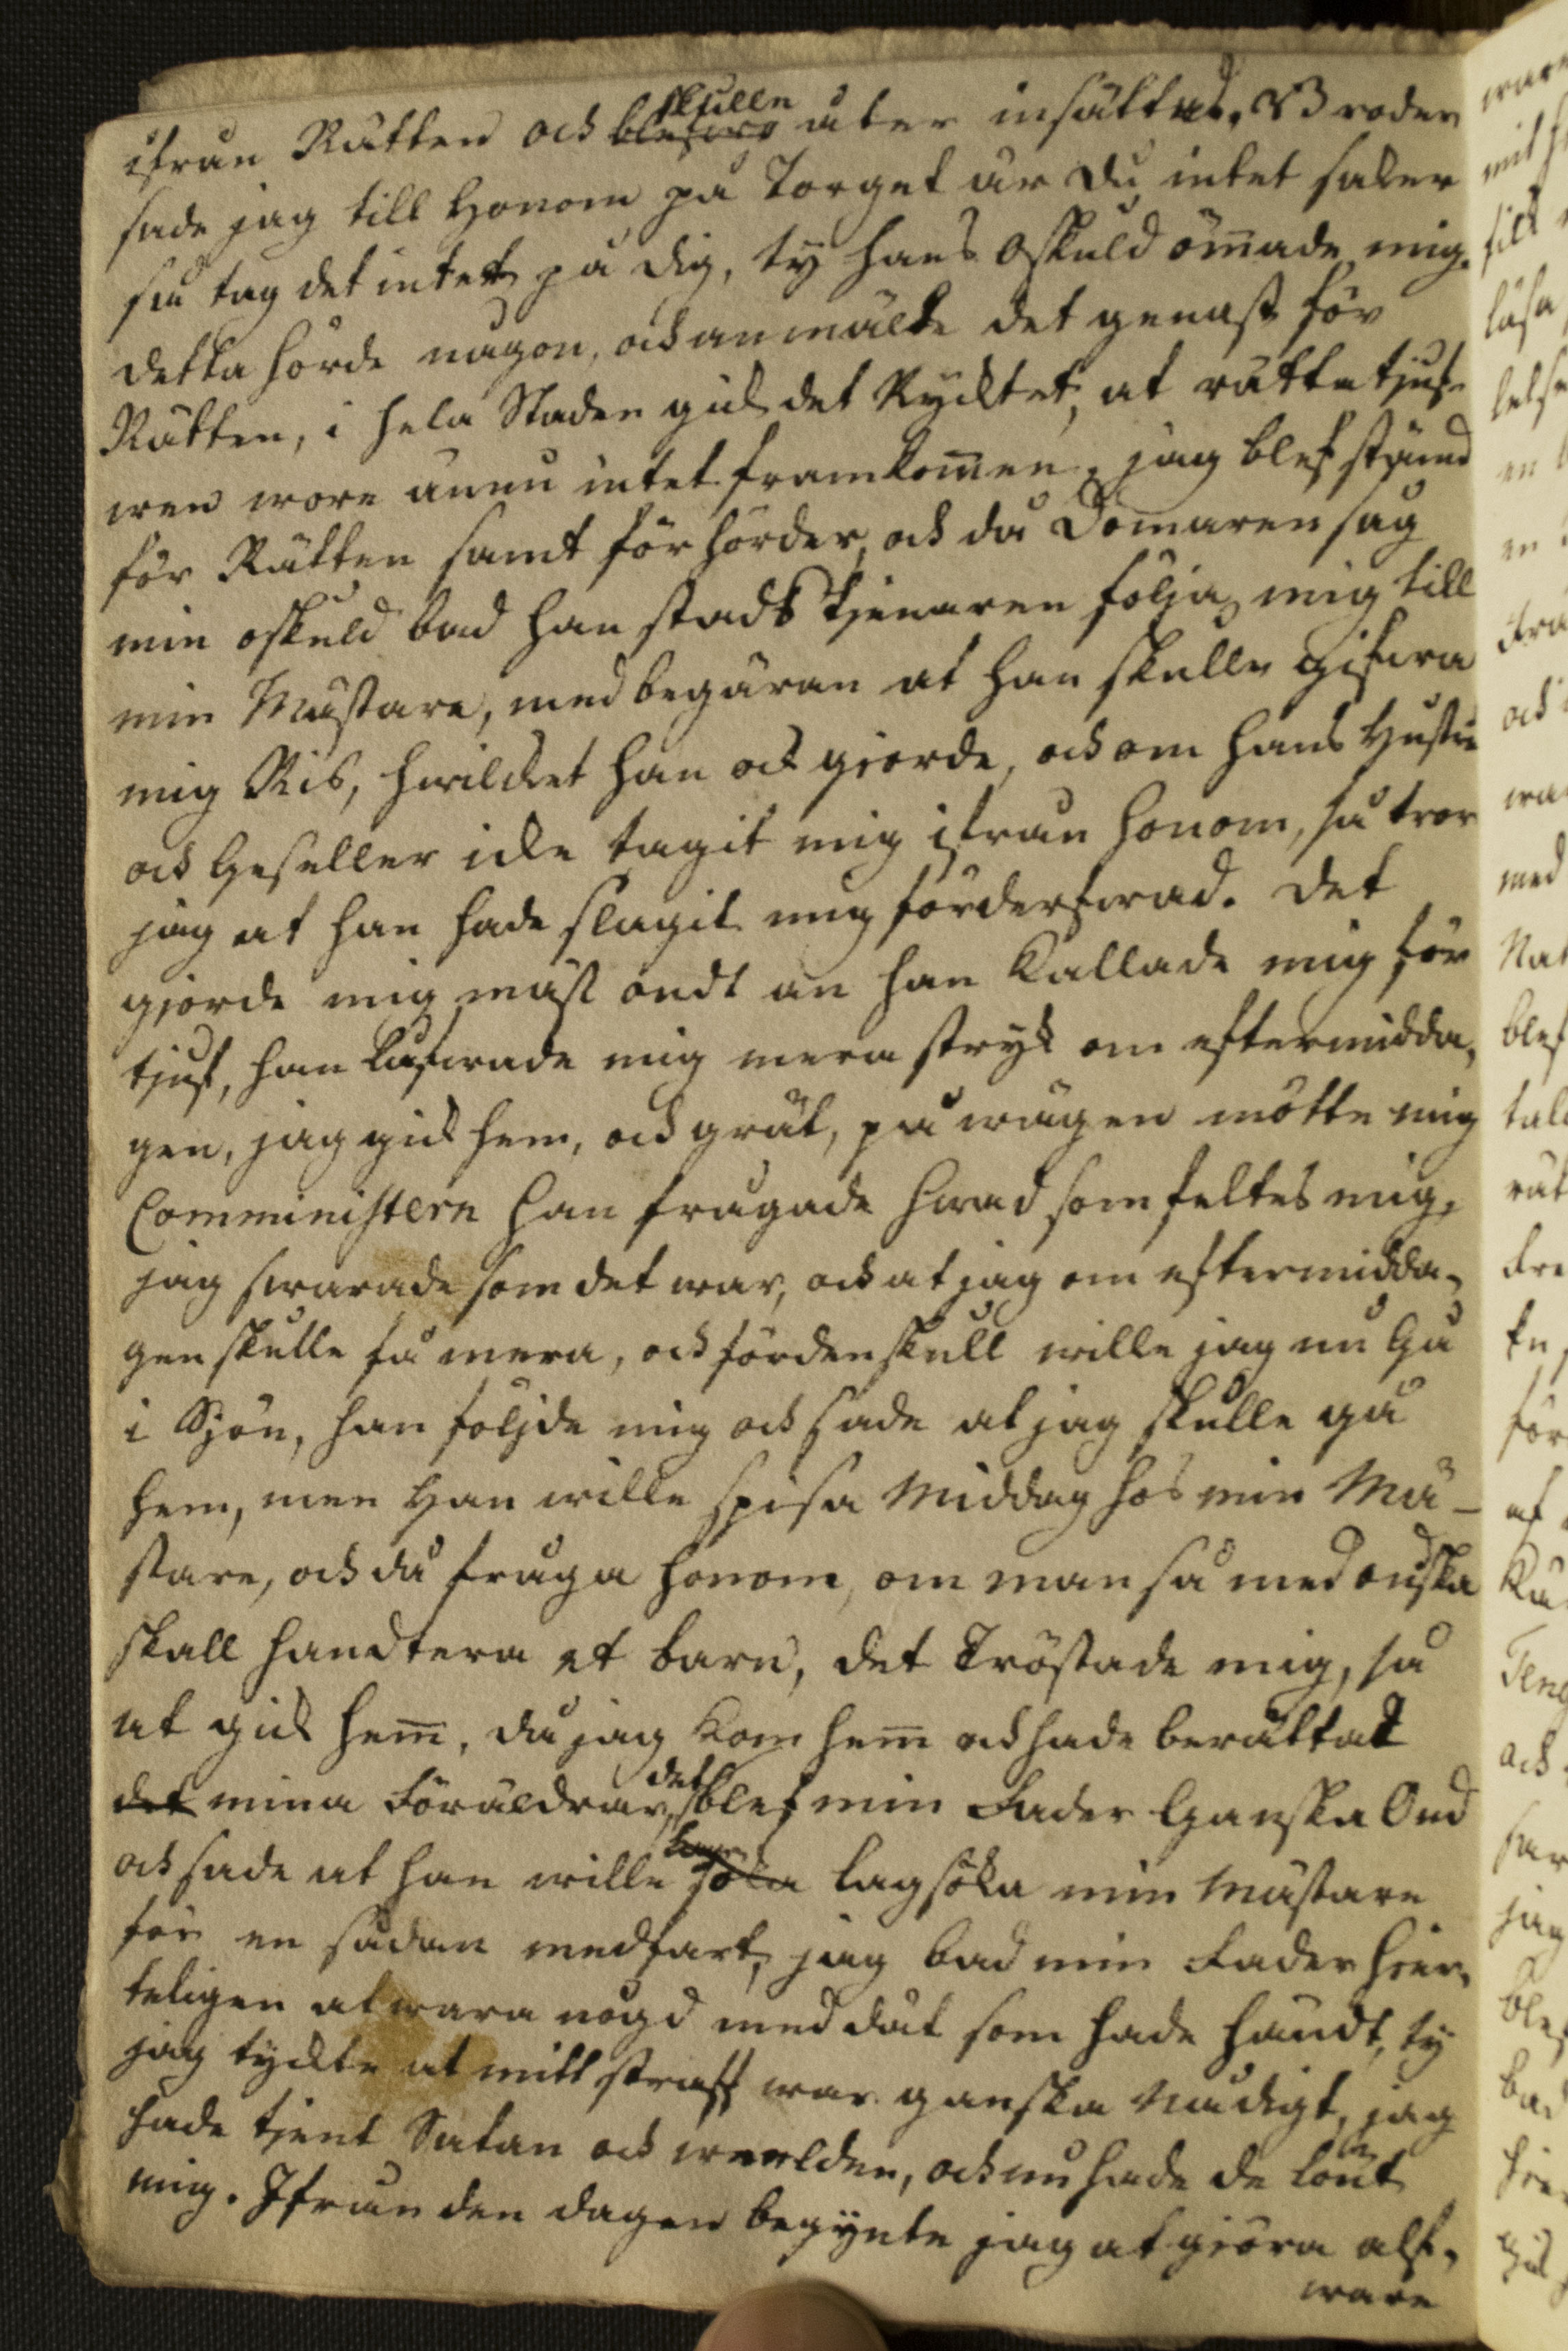 ifrån Rätten och skulle åter insättas. Broder
sade jag till Honom på Torget är du intet saker
så tag det intet på dig, ty hans Oskuld ömade mig.
detta hörde någon, och anmälte det genast för
Rätten, i hela Staden gick det Ryktet, at rätte tjuf-
wen wore ännu intet framkommen, jag blef stämd
för Rätten samt förhörder, och då Domaren såg
min oskuld bad han stads Tjenaren följa mig till
min Mästare, med begäran at han skulle gifwa
mig Ris, hwilket han ock giorde, och om hans Hustru
och Geseller icke tagit mig ifrån honom, så tror
jag at han hade slagit mig förderfwad. det
gjorde mig mäst ondt än han kallade mig för
tjuf, han lufwade mig mera stryk om eftermidda-
gen, jag gick hem, och grät, på wägen mötte mig
Comministern han frågade hwad som feltes mig,
jag swarade som det war, och at jag om eftermidda-
gen skulle få mera, och fördenskull wille jag nu Gå
i Sjön, han följde mig och sade at jag skulle gå
hem, men Han wille spisa Middag hos min Mä-
stare, och då fråga honom, om man så med
skall handtera et barn, det Tröstade mig, så
at gick hem, då jag kom hem och hade berättat
det mina Föräldrar, det blef min Fader Ganska Ond
och sade at han wille söka lagsöka min Mästare
för en sådan medfart, jag bad min Fader hier-
teligen at wara nögd med dät som hade händt, ty
jag tyckte at mitt straff war ganska Nådigt, jag
hade tjent Satan och werlden, och nu hade de lönt
mig. Ifrån den dagen begynte jag at giöra alf-
ware